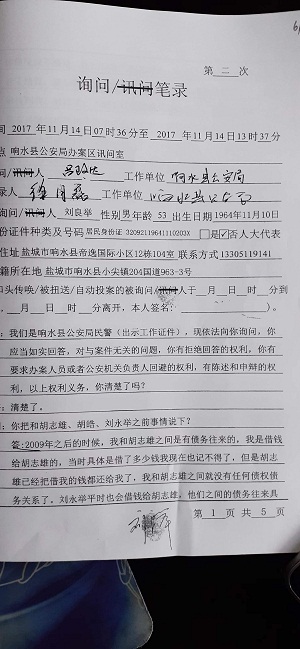 第 二 次
询问/讯问笔录
间 2017 年 11 月 14 日 07 时 36 分至 2017 年 11 月 14 日 13 时 37 分
点 响水县公安局办案区讯问室
问/讯问人 工作单位 响水县公安局
录人 工作单位 响水县公安局
询问/讯问人 刘良举 性别 男 年龄 53 出生日期 1964年11月10日
份证件种类及号码 居民身份证 32092119641110203X □是☑否人大代表
住址 盐城市响水县帝逸国际小区12栋104室 联系方式 13305119141
籍所在地 盐城市响水县小尖镇204国道963-3号
口头传唤/被扭送/自动投案的被询问/讯问人于__月__日__时__分到
__月__日__时__分离开，本人签名：
：我们是响水县公安局民警（出示工作证件），现依法向你询问，你
应当如实回答，对与案件无关的问题，你有拒绝回答的权利，你有
要求办案人员或者公安机关负责人回避的权利，有陈述和申辩的权
利，以上权利义务，你清楚了吗？
：清楚了。
：你把和胡志雄、胡皓、刘永举之前事情说下？
答:2009年之后的时候，我和胡志雄之间是有债务往来的，我是借钱
给胡志雄的，当时具体是借了多少钱我现在也记不得了，但是胡志
雄已经把借我的钱都还给我了，我和胡志雄之间就没有任何债权债
务关系了。刘永举平时也会借钱给胡志雄，他们之间的债务往来具
第 1 页 共 5 页